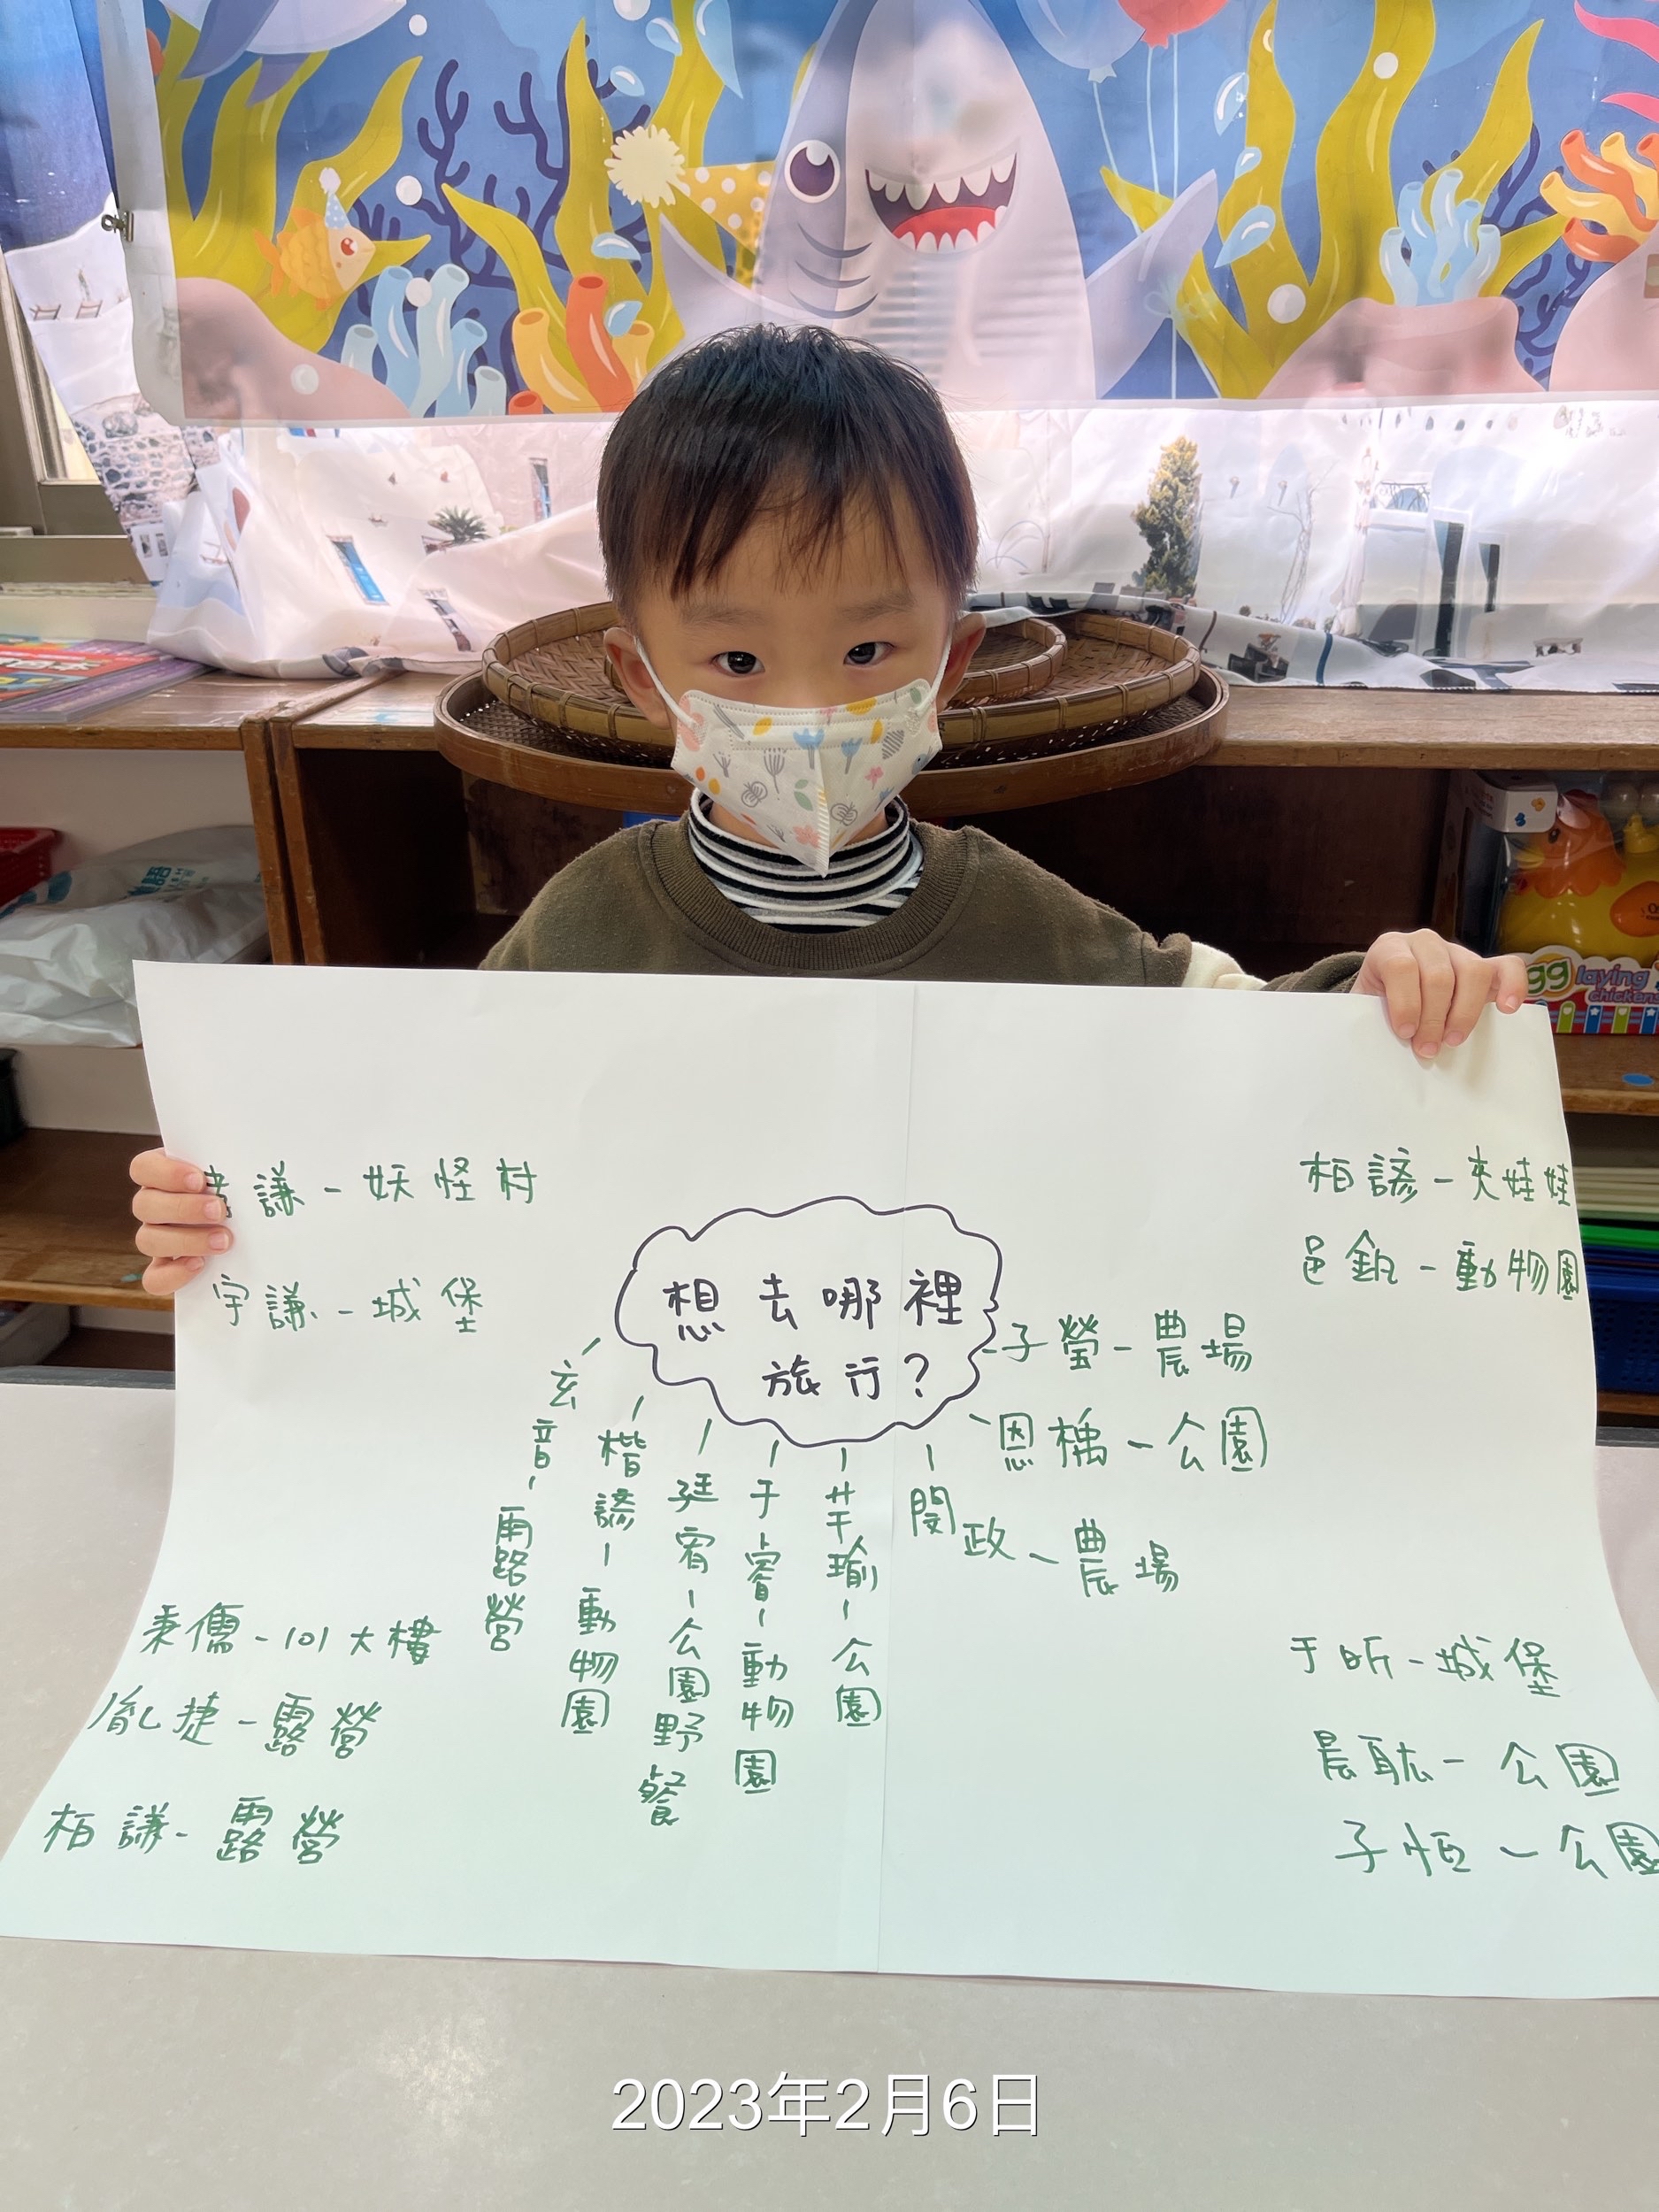 謙-妖怪村
宇謙-城堡
想去哪裡
旅行?
柏諺-夾娃娃
邑釩-動物園
子瑩-農場
恩橋-公園
閔政-農場
芊瑜-公園
于睿-動物園
廷宥-公園野餐
楷諺-動物園
玄音-露營
秉儒-101大樓
胤捷-露營
柏謙-露營
于昕-城堡
晨耘-公園
子恒-公園
gg laying
chickens
2023年2月6日